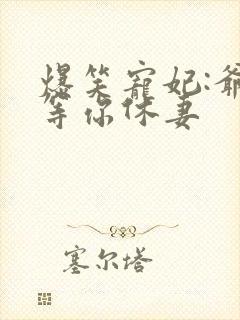 爆笑寵妃:爺
等你休妻
塞尔塔